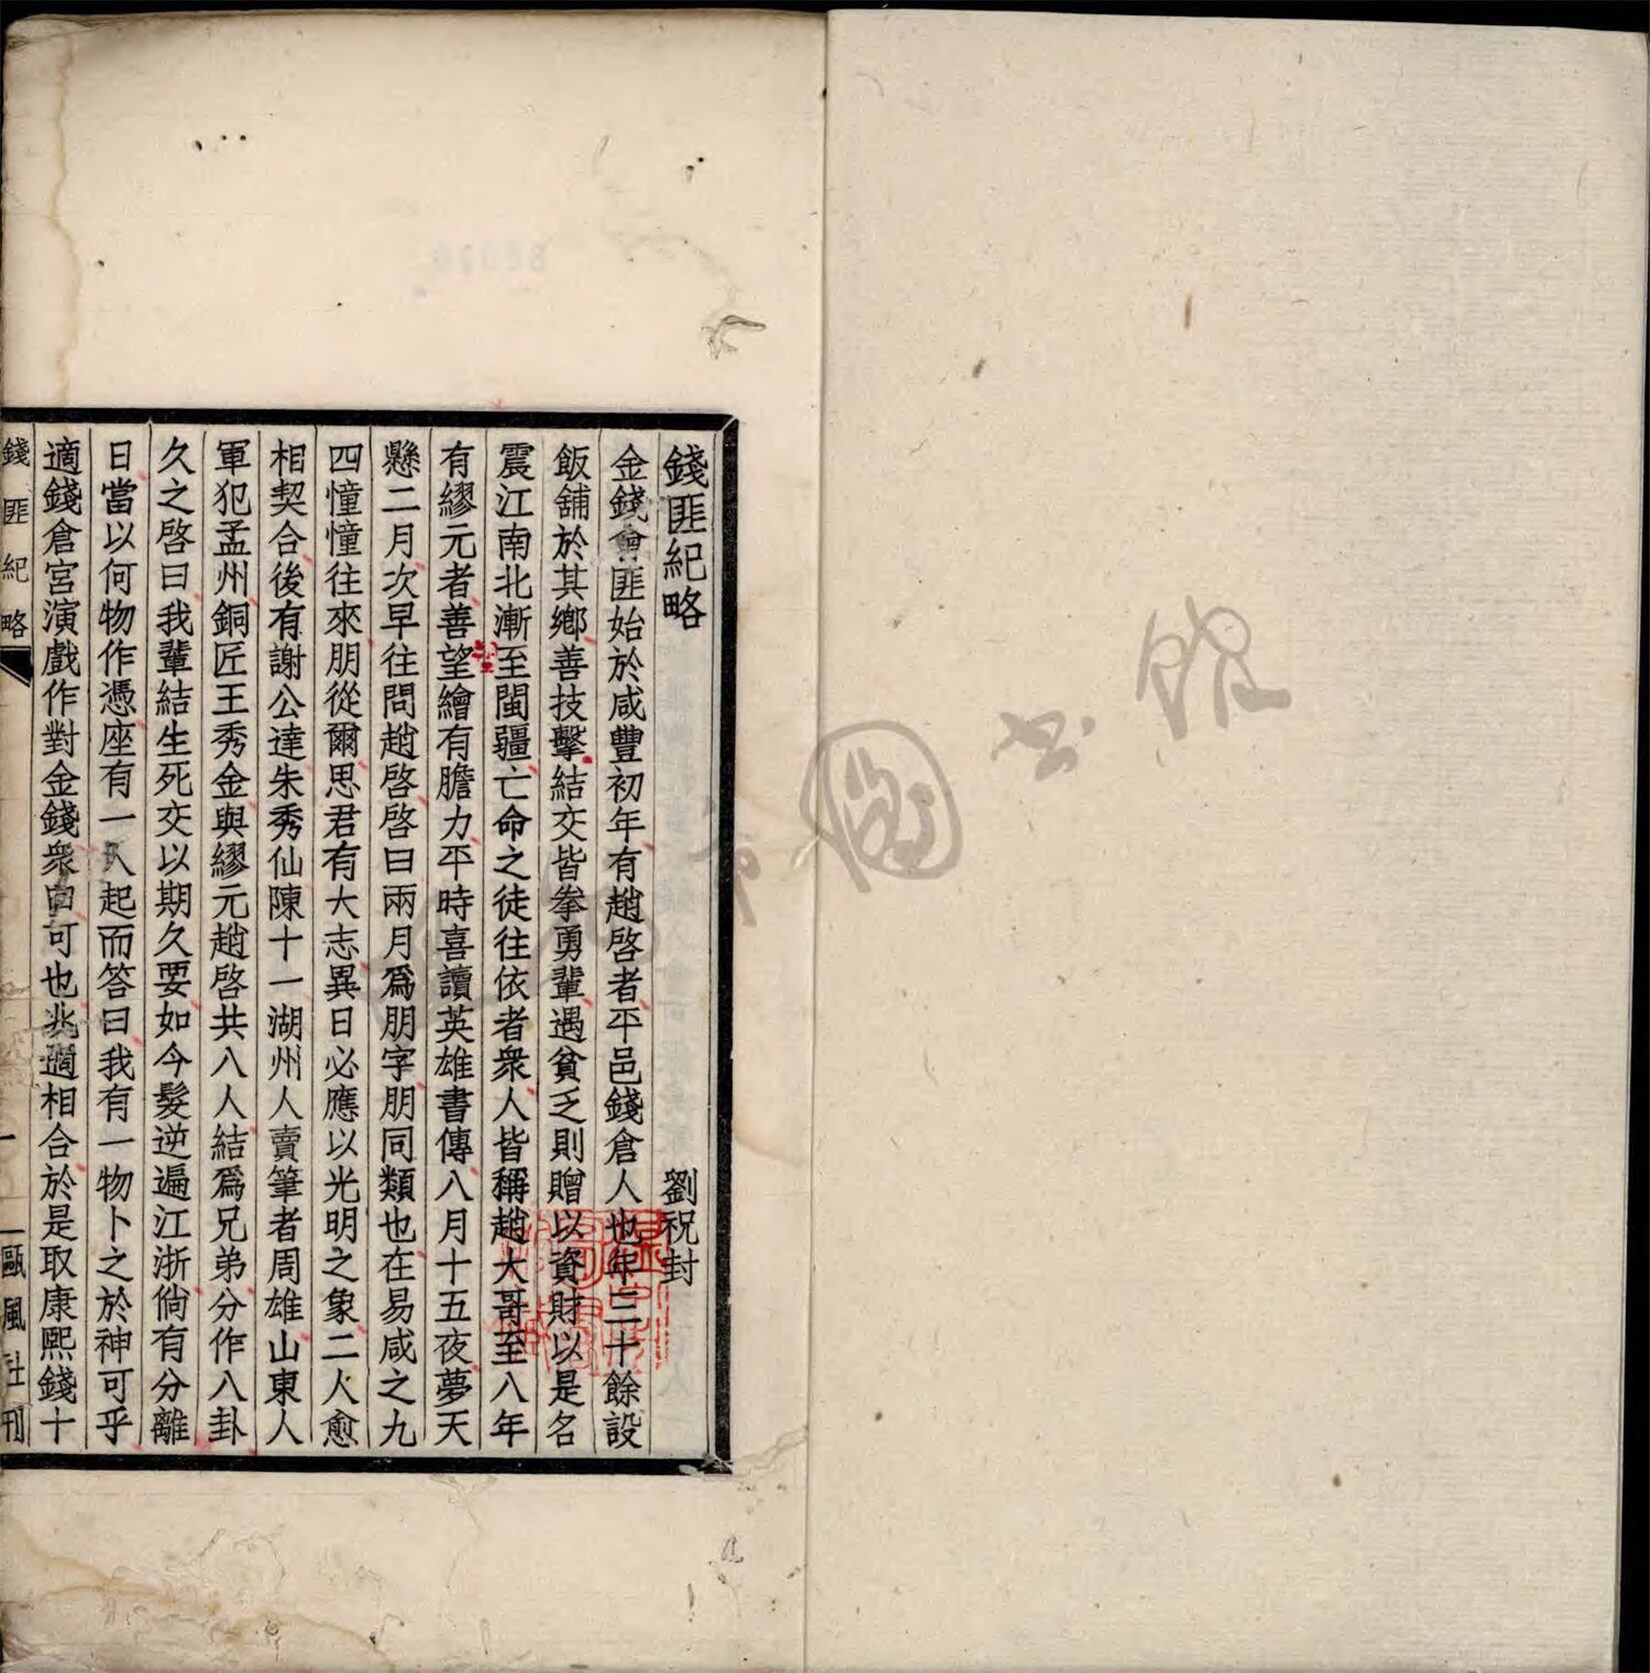 錢匪紀略 劉祝封
金錢會匪始於咸豐初年有趙啓者平邑錢倉人也年三十餘設
飯舖於其鄉善技擊結交皆拳勇輩遇貧乏則贈以資財以是名
震江南北漸至閩疆亡命之徒往依者衆人皆稱趙大哥至八年
有繆元者善望繪有膽力平時喜讀英雄書傳八月十五夜夢天
懸二月次早往問趙啓啓曰兩月爲朋字朋同類也在易咸之九
四憧憧往來朋從爾思君有大志異日必應以光明之象二人愈
相契合後有謝公達朱秀仙陳十一湖州人賣筆者周雄山東人
軍犯孟州銅匠王秀金與繆元趙啓共八人結爲兄弟分作八卦
久之啓曰我輩結生死交以期久要如今髮逆遍江浙倘有分離
日當以何物作憑座有一人起而答曰我有一物卜之於神可乎
適錢倉宮演戲作對金錢衆曰可也兆適相合於是取康熙錢十
錢匪紀略 一 甌風社刊
圖書館